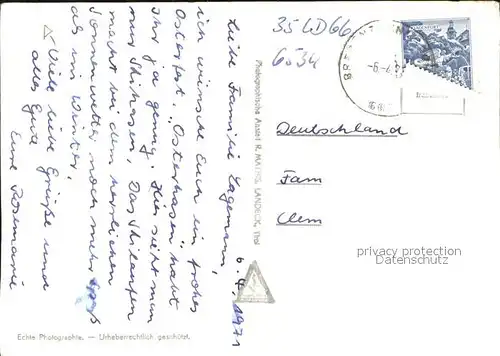 6. 4. 1971
Liebe Familie Lagemann,
ich wünsche Euch ein frohes
Osterfest. „Osterhasen" habt
Ihr ja genug. Hier sieht man
nur Skihasen. Das Skilaufen
macht bei dem herrlichen
Sonnenwetter noch mehr Spaß
als im Winter.
Viele liebe Grüße und
alles Gute
Eure Rosemarie
Echte Photographie. — Urheberrechtlich geschützt.
Photographische Anstalt R. MATHIS, LANDECK, Tirol
35 LD 66
6534
Deutschland
Fam
privacy protection
Datenschutz